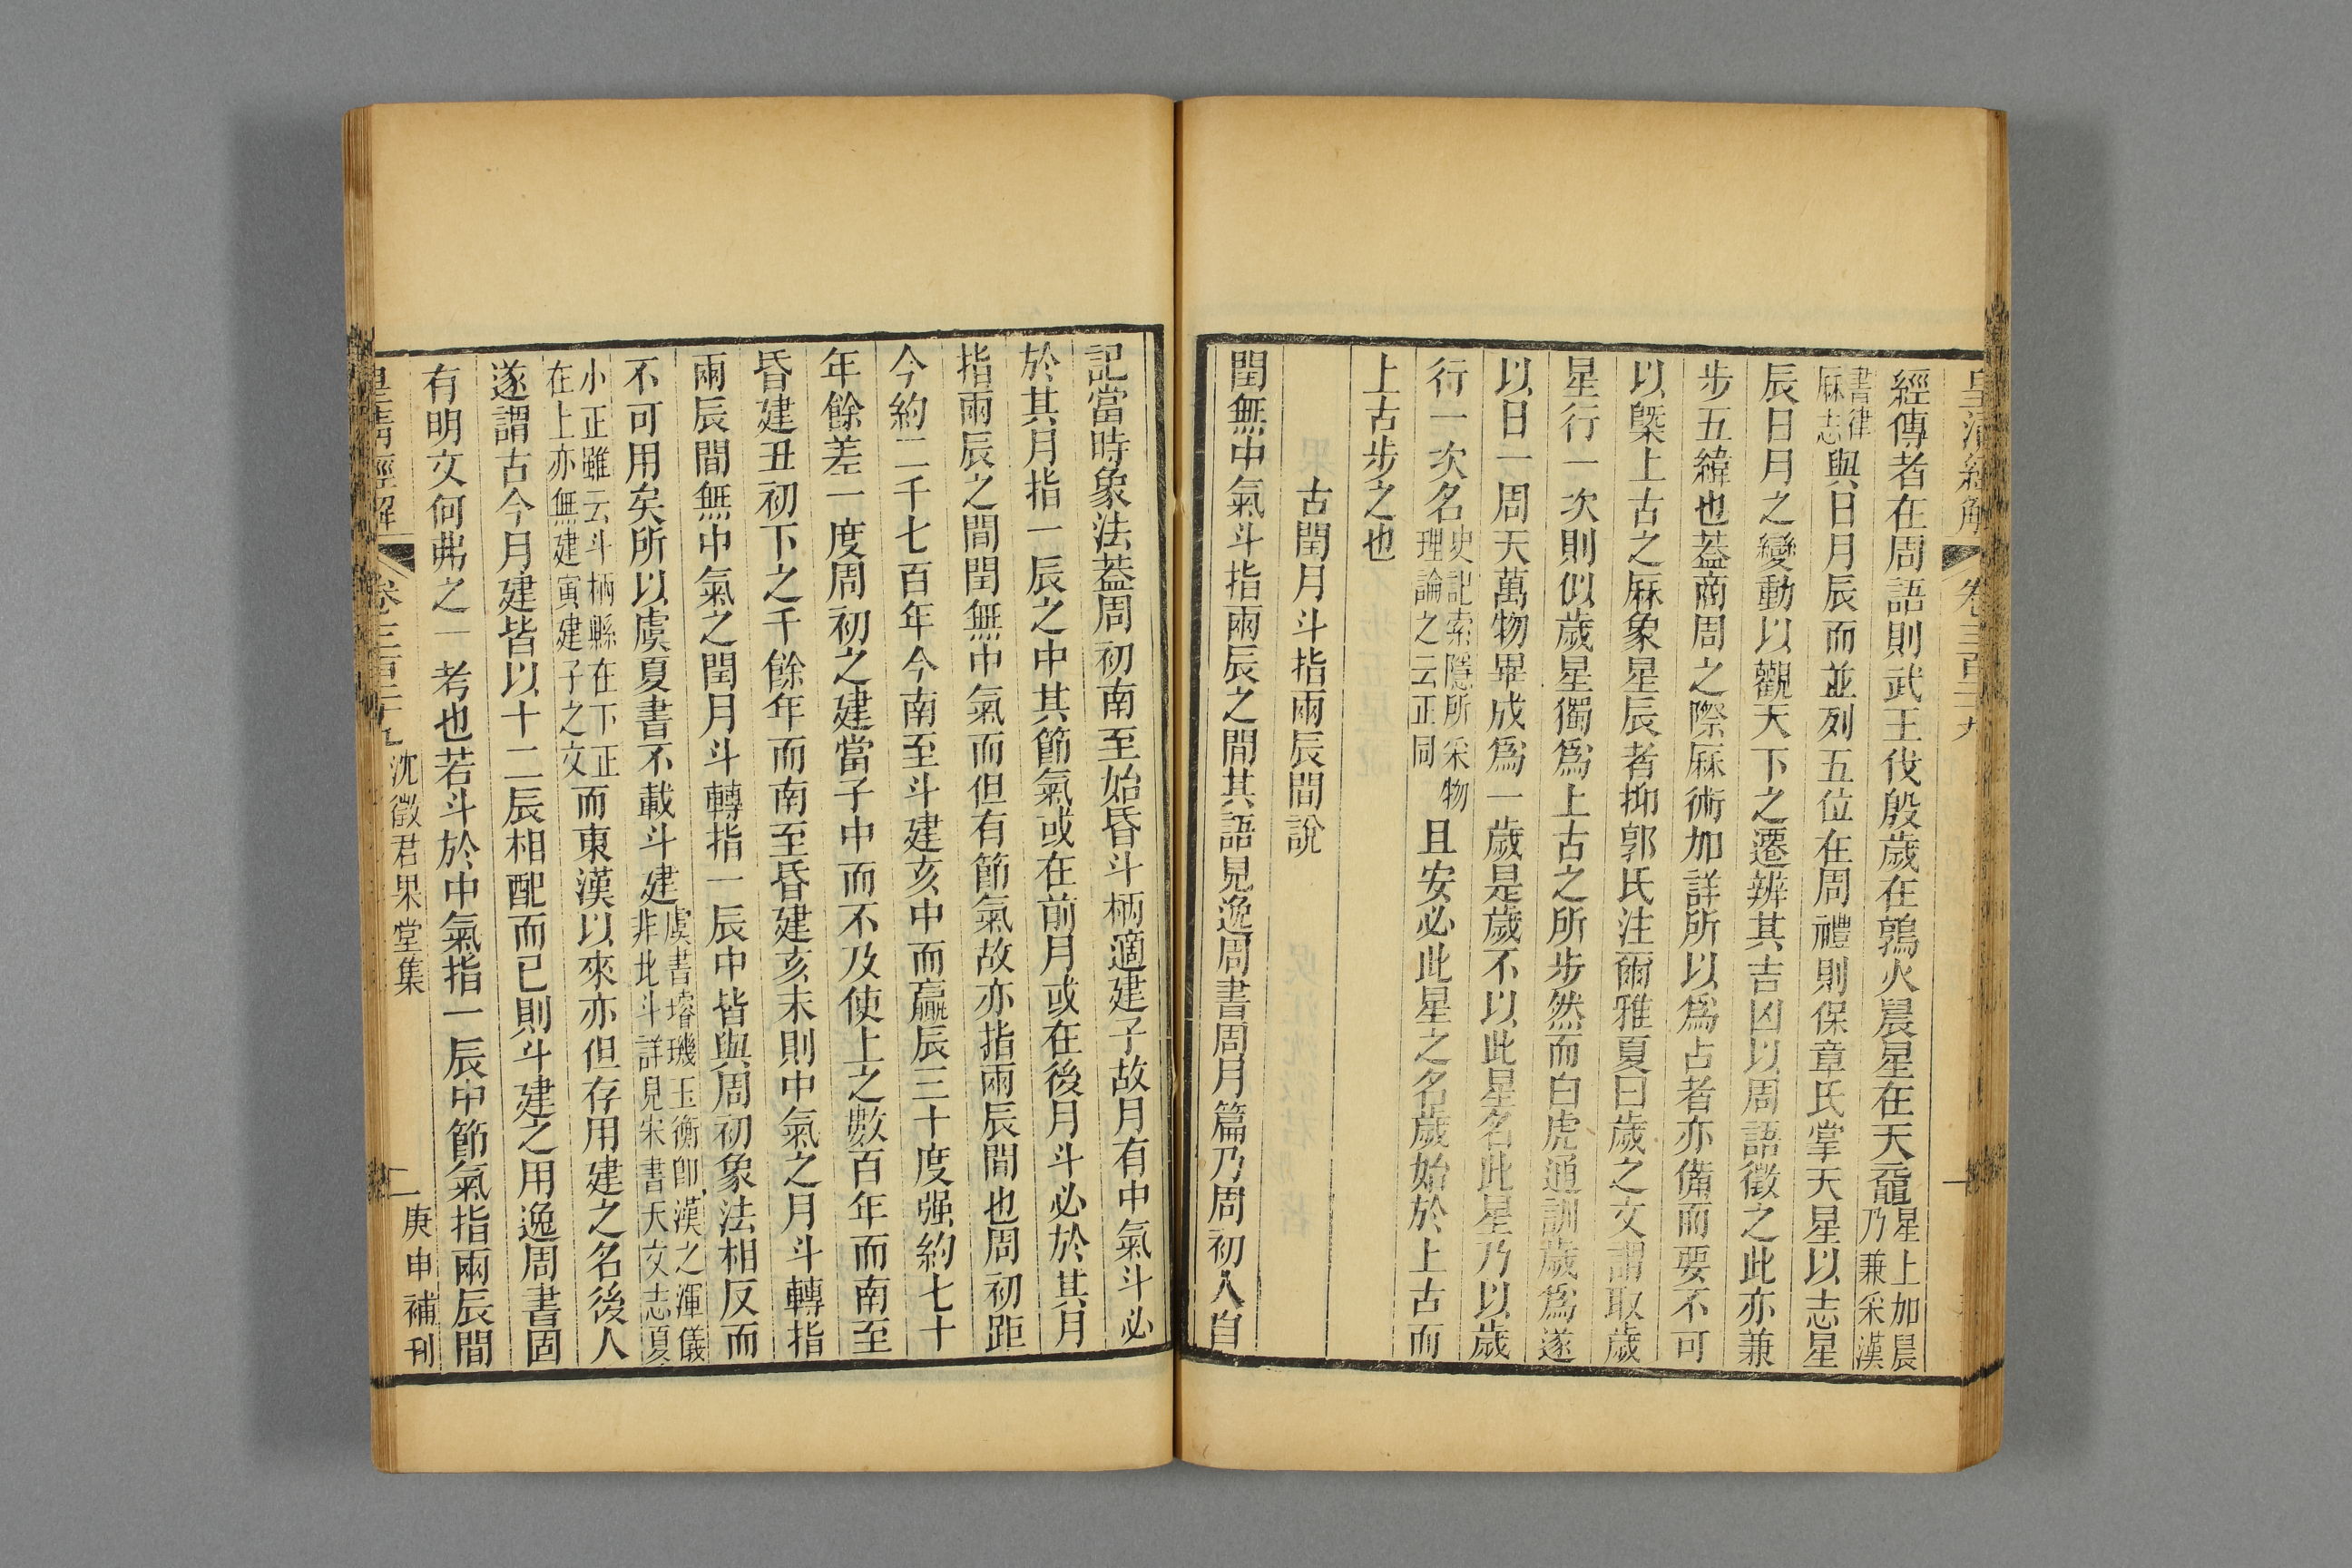 皇清經解
卷三百二十九
一
經傳者在周語則武王伐殷歲在鶉火晨星在天黿星上加晨乃兼采漢
書律厤志與日月辰而並列五位在周禮則保章氏掌天星以志星
辰日月之變動以觀天下之遷辨其吉凶以周語徵之此亦兼
步五緯也葢商周之際厤術加詳所以爲占者亦備而要不可
以槩上古之厤象星辰者抑郭氏注爾雅夏曰歲之文謂取歲
星行一次則似歲星獨爲上古之所步然而白虎通訓歲爲遂
以日一周天萬物畢成爲一歲是歲不以此星名此星乃以歲
行一次名史記索隱所采物理論之云正同且安必此星之名歲始於上古而
上古步之也
古閏月斗指兩辰間說
閏無中氣斗指兩辰之間其語見逸周書周月篇乃周初人自
記當時象法葢周初南至始昏斗柄適建子故月有中氣斗必
於其月指一辰之中其節氣或在前月或在後月斗必於其月
指兩辰之間閏無中氣而但有節氣故亦指兩辰間也周初距
今約二千七百年今南至斗建亥中而贏辰三十度强約七十
年餘差一度周初之建當子中而不及使上之數百年而南至
昏建丑初下之千餘年而南至昏建亥末則中氣之月斗轉指
兩辰間無中氣之閏月斗轉指一辰中皆與周初象法相反而
不可用矣所以虞夏書不載斗建虞書璿璣玉衡卽漢之渾儀非北斗詳見宋書天文志夏
小正雖云斗柄縣在下正在上亦無建寅建子之文而東漢以來亦但存用建之名後人
遂謂古今月建皆以十二辰相配而已則斗建之用逸周書固
有明文何弗之一考也若斗於中氣指一辰中節氣指兩辰間
皇清經解
卷三百二十九
沈徵君果堂集
二
庚申補刊